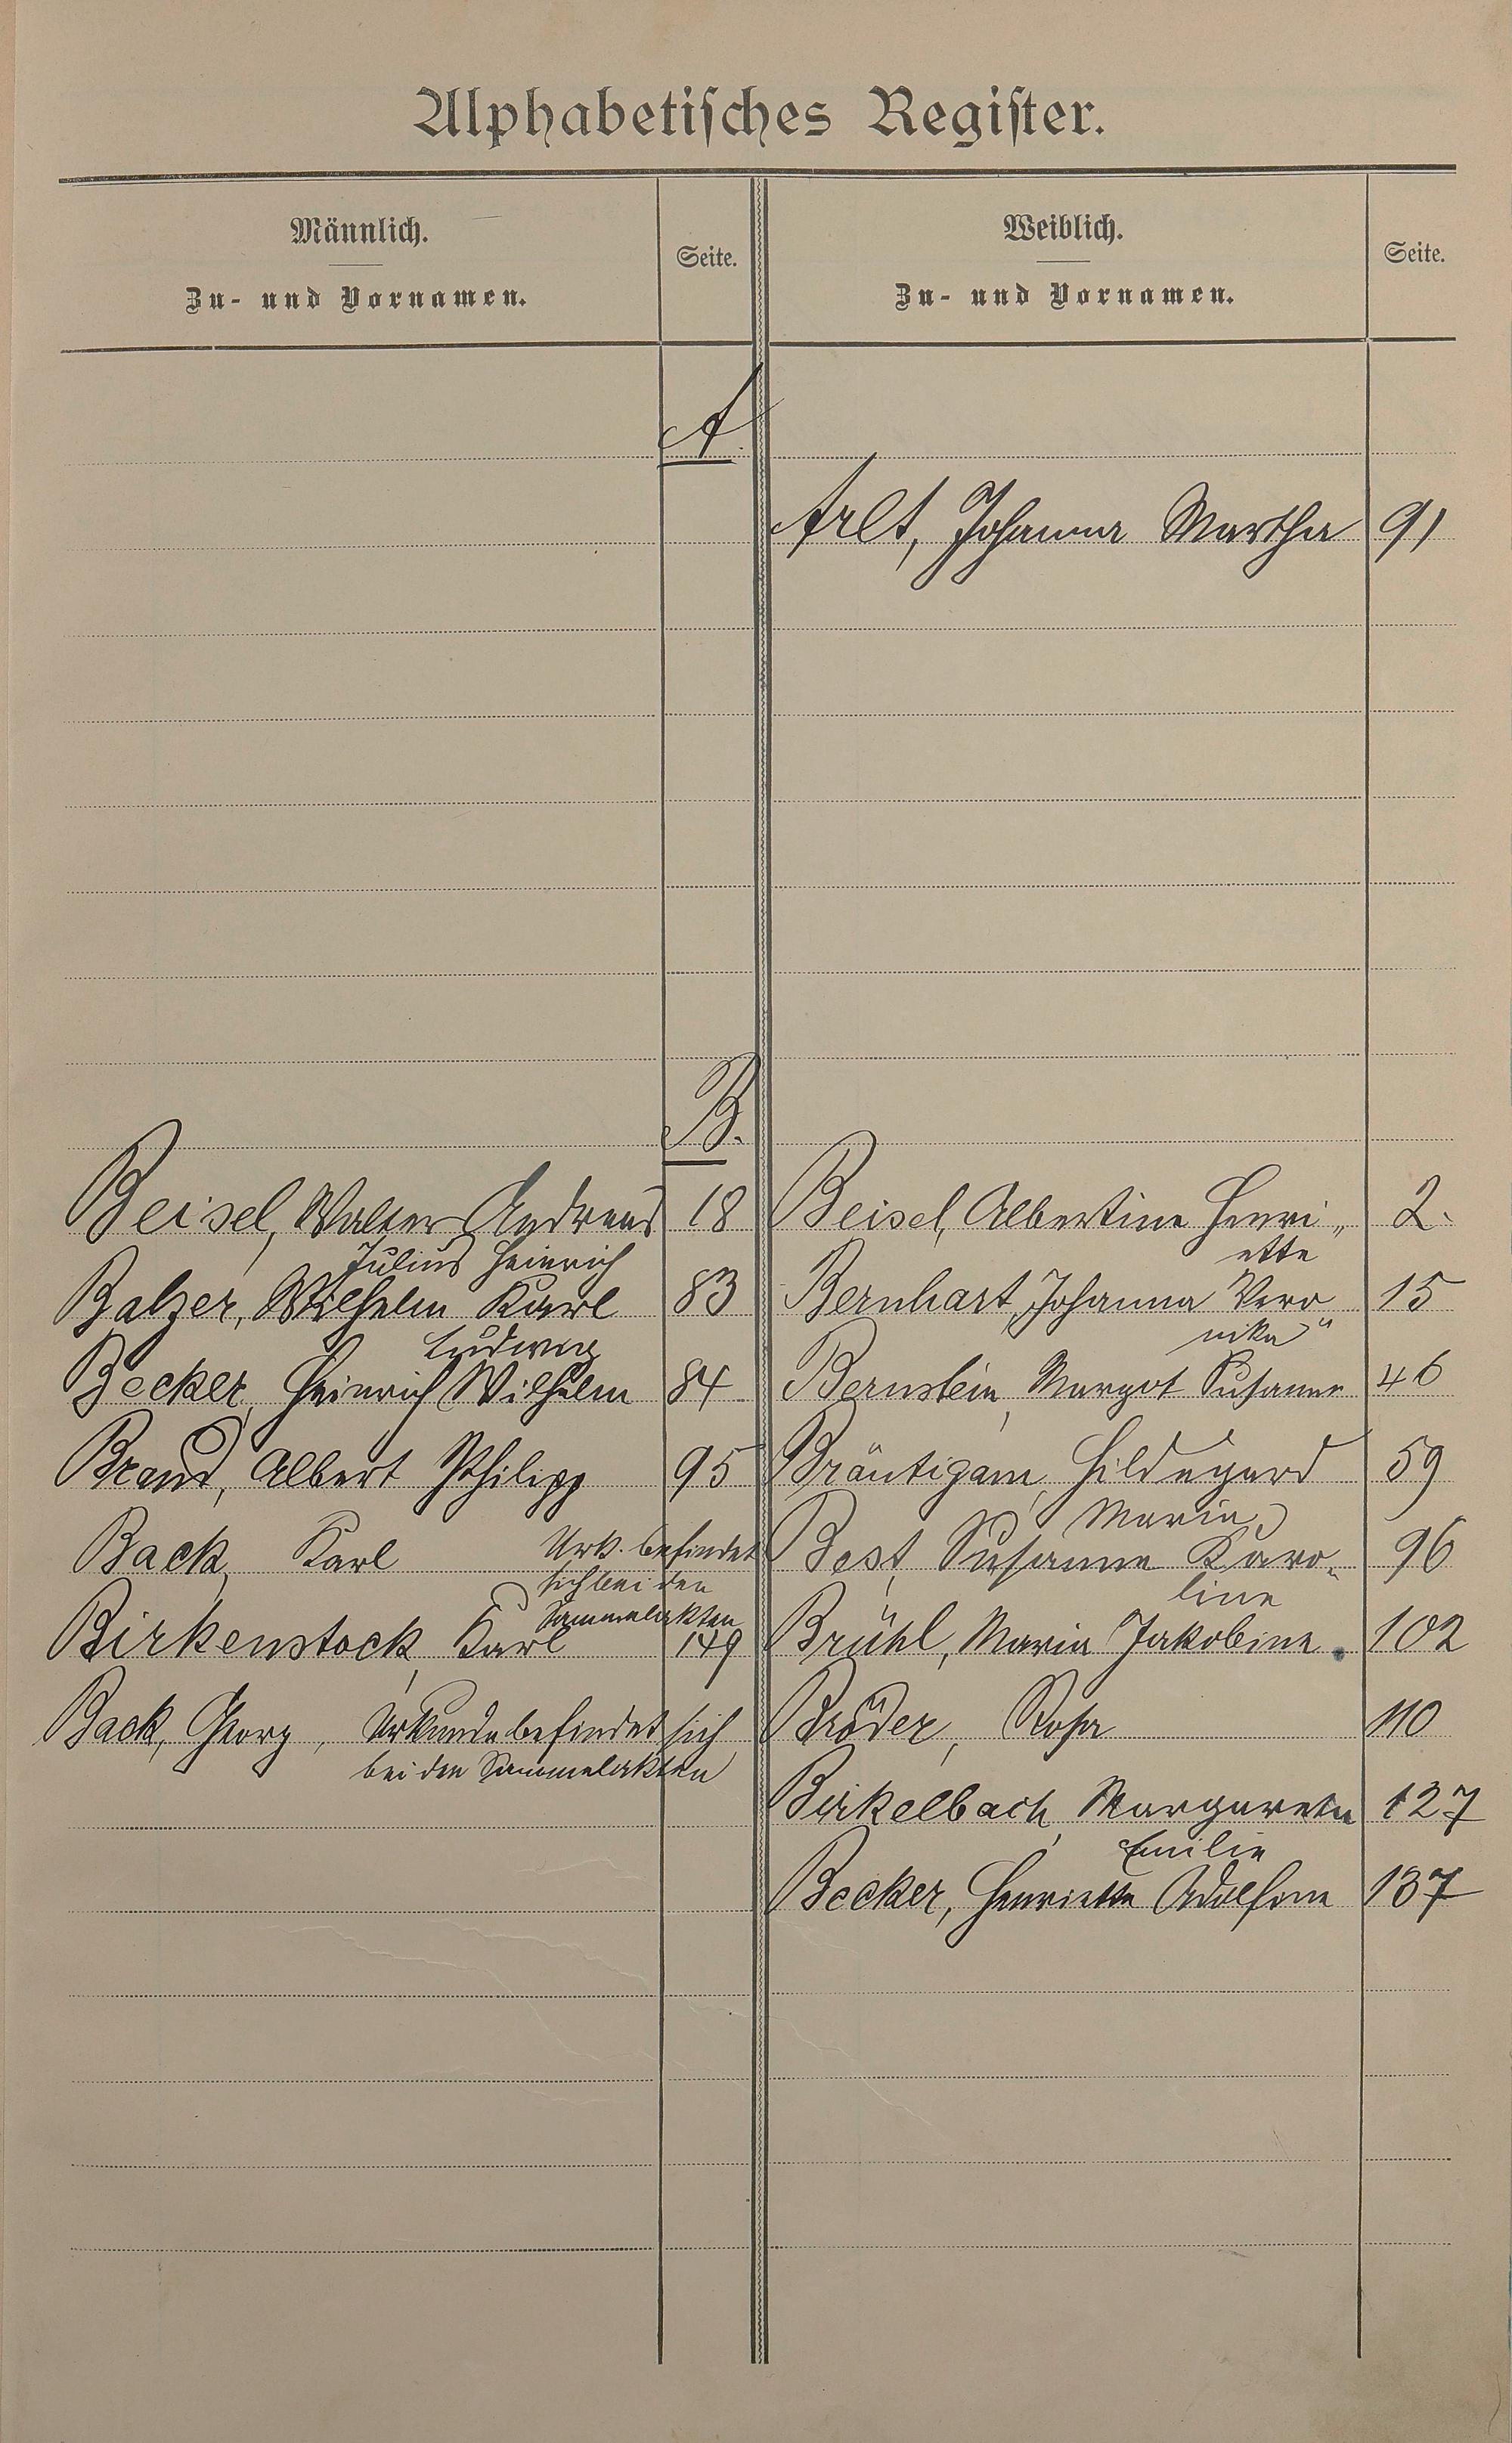 Alphabetisches Register.
Männlich.
Zu- und Vornamen.
Seite.
Weiblich.
Zu- und Vornamen.
Seite.
A.
Arlt, Johanna Martha 91
B.
Beisel, Walter Andreas 18
Julius Heinrich
Balzer, Wilhelm Karl 83
Ludwig
Becker, Heinrich Wilhelm 84
Brand, Albert Philipp 95
Back, Karl Urk. befindet
sich bei den
Sammelakten
Birkenstock, Karl 149
Back, Georg, Urkunde befindet sich
bei den Sammelakten
Beisel, Albertine Henri„ 2.
ette
Bernhart, Johanna Vero 15
nika"
Bernstein, Margot Susanne 46
Bräutigam, Hildegard 59
Maria
Best, Susanna Karo- 96
line
Brühl, Maria Jakobine. 102
Bröder, Rosa 110
Birkelbach, Margareta 127
Emilie
Becker, Henriette Adolfine 137